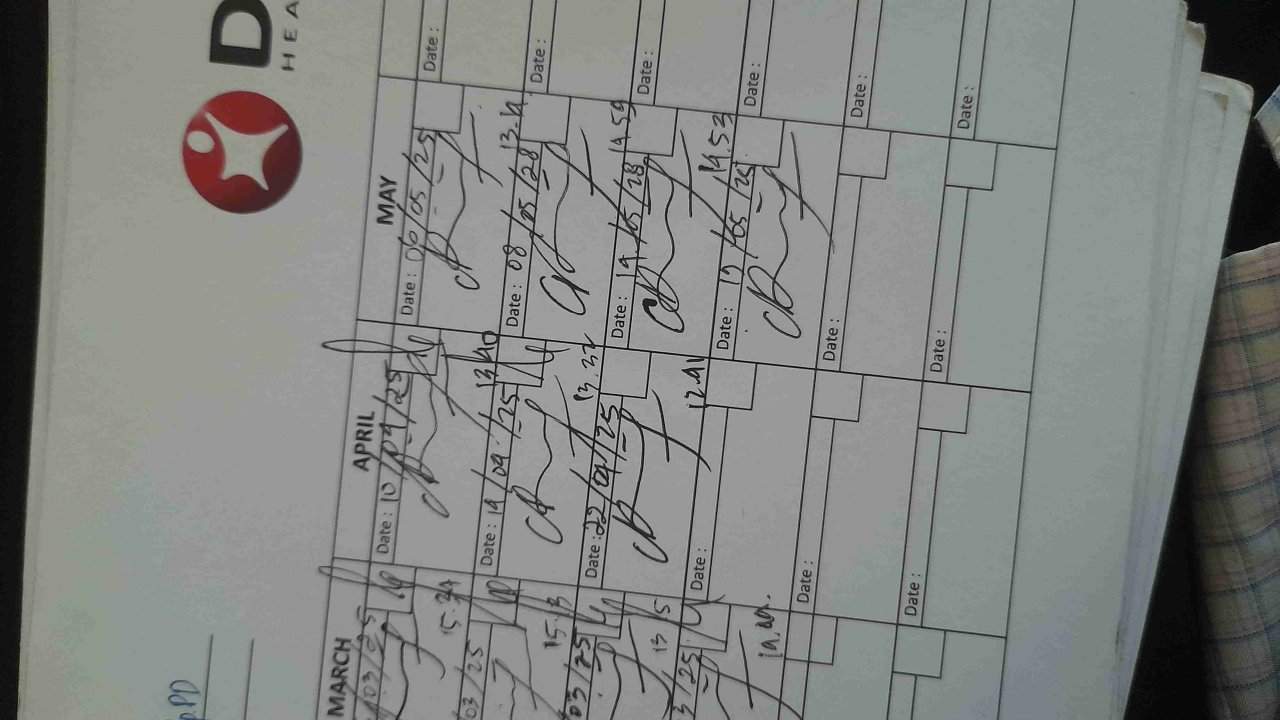 D
HEA
p.PD
MARCH
APRIL
MAY
03/25
Date: 10/04/25
Date: 06/05/25
Date:
15.24
13.40
13.41
03/25
Date: 14/04/25
Date: 08/05/28
Date:
15.13
13.32
14.59
03/25
Date: 22/04/25
Date: 14/05/28
Date:
13
12.41
14.53
3/25
Date:
Date: 17/05/25
Date:
Date:
Date:
Date:
Date:
Date:
Date: